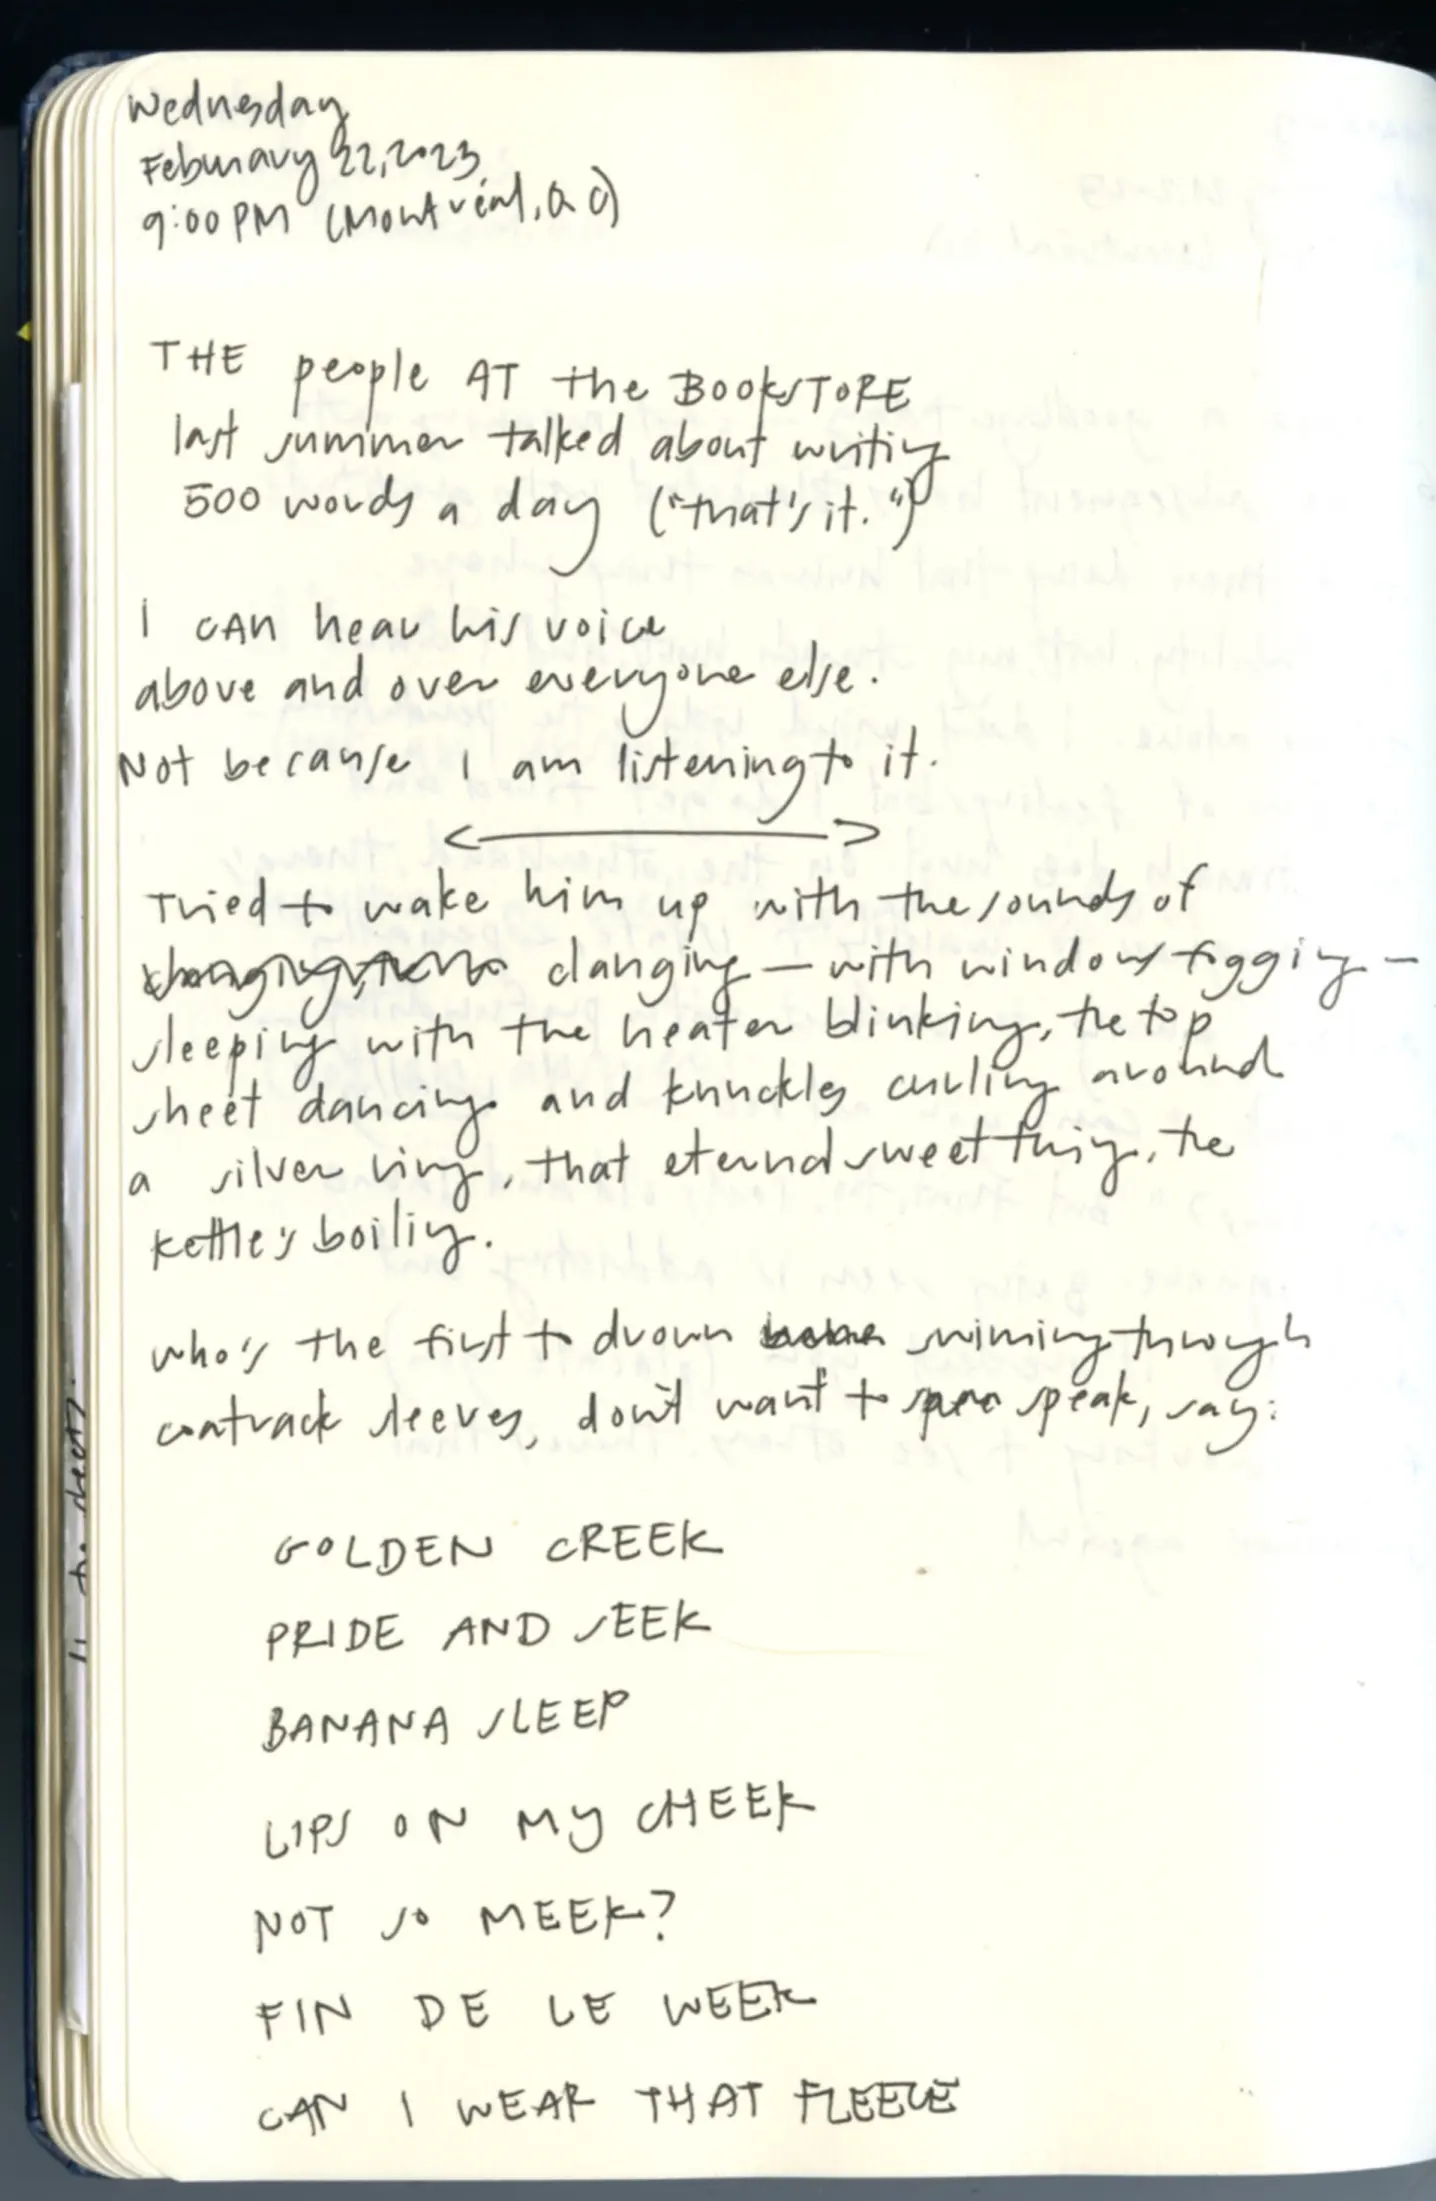 Wednesday
February 22, 2023
9:00 PM (Montréal, QC)
THE people AT the BOOKSTORE
last summer talked about writing
500 words a day ("that's it.")
I CAN hear his voice
above and over everyone else.
Not because I am listening to it.
Tried to wake him up with the sounds of
clanging — with windows fogging —
sleeping with the heater blinking, the top
sheet dancing and knuckles curling around
a silver ring, that eternal sweet thing, the
kettle's boiling.
who's the first to drown swimming through
coatrack sleeves, don't want to speak, say:
GOLDEN CREEK
PRIDE AND SEEK
BANANA SLEEP
LIPS ON MY CHEEK
NOT SO MEEK?
FIN DE LE WEEK
CAN I WEAR THAT FLEECE
the sheets.